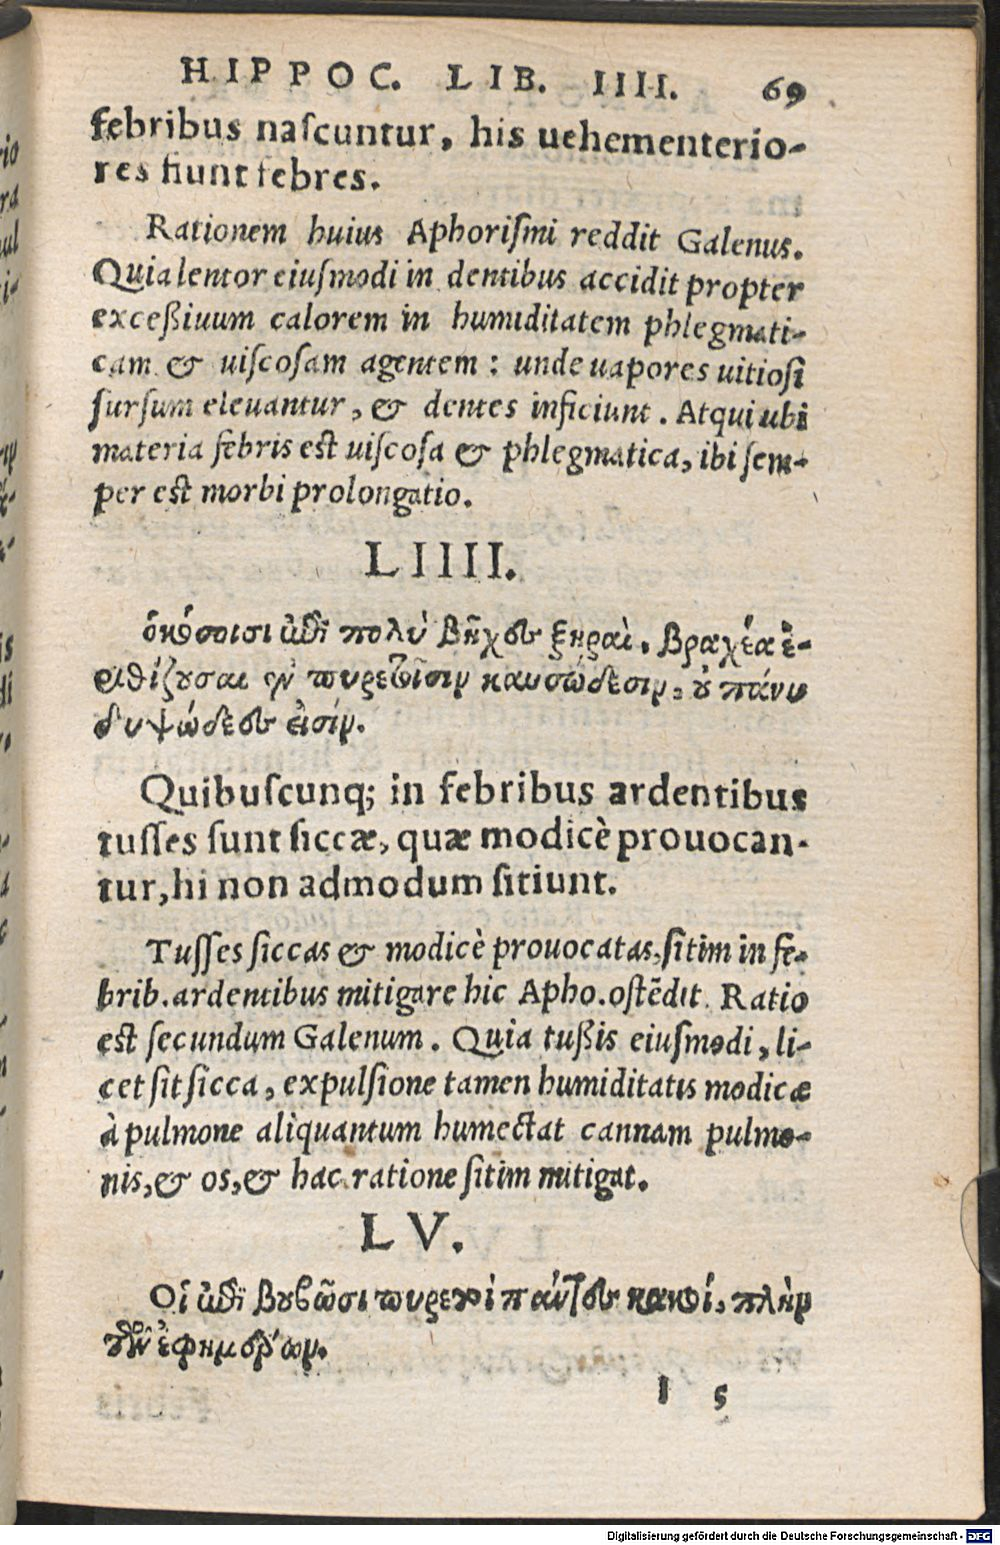 HIPPOC. LIB. IIII. 69
febribus naſcuntur, his uehementerio-
res fiunt febres.
Rationem huius Aphoriſmi reddit Galenus.
Quia lentor eiuſmodi in dentibus accidit propter
exceßiuum calorem in humiditatem phlegmati-
cam & uiſcoſam agentem: unde uapores uitioſi
ſurſum eleuantur, & dentes inficiunt. Atqui ubi
materia febris est uiſcoſa & phlegmatica, ibi ſem-
per est morbi prolongatio.
LIIII.
ὁκόσοισι ἐπὶ πολὺ βῆχες ξηραὶ, βραχέα ἐ-
ρεθίζουσαι ἐν πυρετοῖσιν καυσώδεσιν, οὐ πάνυ
διψώδεες εἰσίν.
Quibuſcunq; in febribus ardentibus
tuſſes ſunt ſiccæ, quæ modicè prouocan-
tur, hi non admodum ſitiunt.
Tuſſes ſiccas & modicè prouocatas, ſitim in fe-
brib. ardentibus mitigare hic Apho. oſtẽdit. Ratio
est ſecundum Galenum. Quia tußis eiuſmodi, li-
cet ſit ſicca, expulſione tamen humiditatis modicæ
à pulmone aliquantum humectat cannam pulmo-
nis, & os, & hac ratione ſitim mitigat.
LV.
Οἱ ἐπὶ βουβῶσι πυρετοὶ πάντες κακοί, πλὴν
τῶν ἐφημέρων.
I 5
Febris
Digitalisierung gefördert durch die Deutsche Forschungsgemeinschaft - DFG